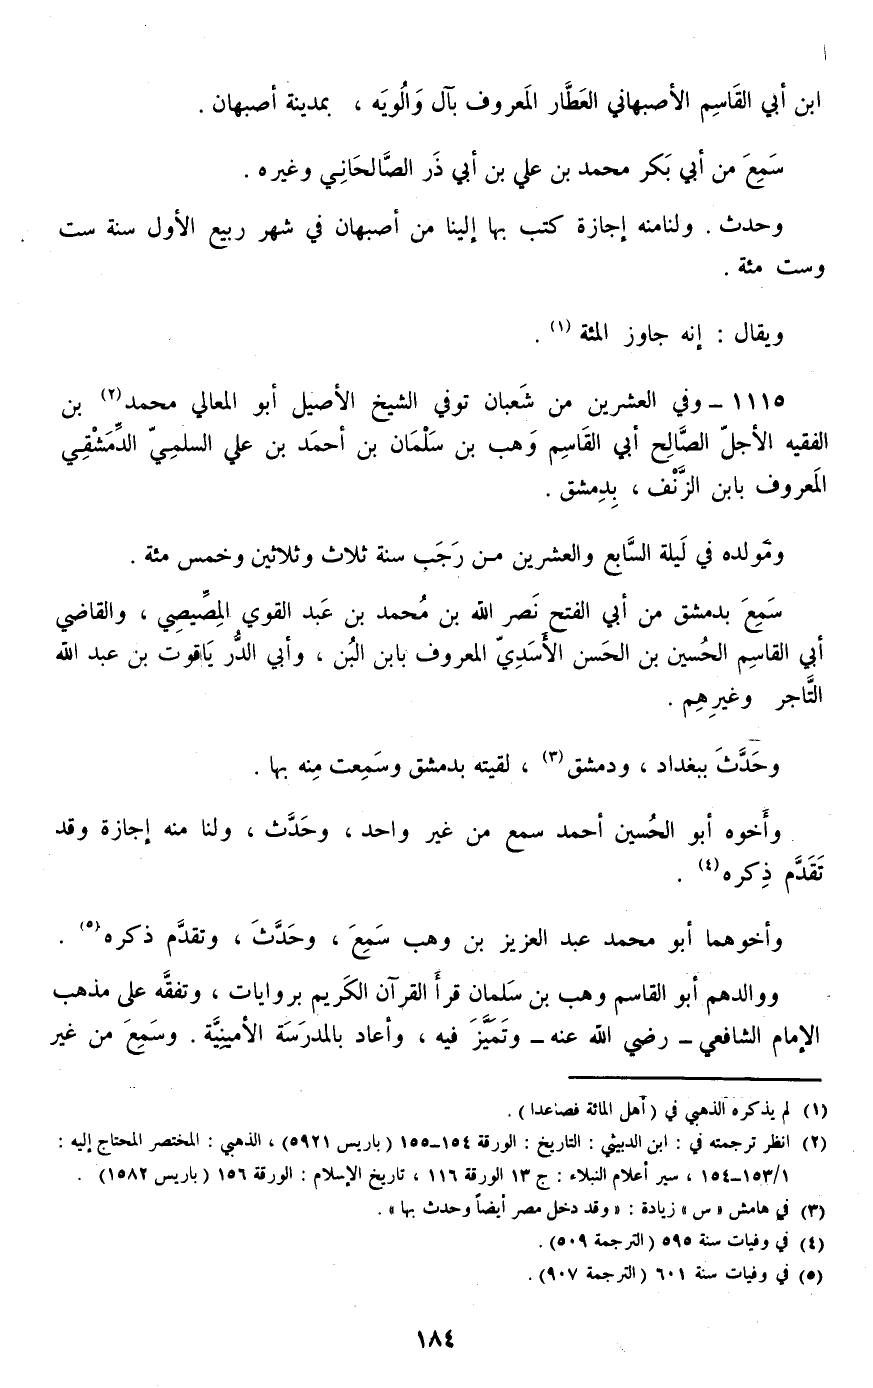 ابن أبي القَاسِم الأصبهاني العَطَّار المَعروف بآل وَالُويَه ، بمدينة أصبهان .
سَمِعَ من أبي بَكر محمد بن علي بن أبي ذَر الصَّالحَانِي وغيره .
وحدث . ولنامنه إجازة كتب بها إلينا من أصبهان في شهر ربيع الأول سنة ست
وست مئة .
ويقال : إنه جاوز المئة (١) .
١١١٥ ـ وفي العشرين من شَعبان توفي الشيخ الأصيل أبو المعالي محمد(٢) بن
الفقيه الأجلّ الصَّالِح أبي القَاسِم وَهب بن سَلْمَان بن أحمَد بن علي السلميّ الدِّمَشْقِي
المَعروف بابن الزَّنْف ، بِدِمشق .
ومَولده في لَيلة السَّابع والعشرين مـن رَجَب سنة ثلاث وثلاثين وخمس مئة .
سَمِعَ بدمشق من أبي الفتح نَصر الله بن مُحمد بن عَبد القوي المِصِّيصِي ، والقاضي
أبي القاسِم الحُسين بن الحَسن الأَسَدِيّ المعروف بابن البُن ، وأبي الدُّر يَاقوت بن عبد الله
التَّاجر وغيرِهِم .
وحَدَّثَ ببغداد ، ودمشق(٣) ، لقيته بدمشق وسَمِعت مِنه بها .
وأَخوه أبو الحُسين أحمد سمع من غير واحد ، وحَدَّث ، ولنا منه إجازة وقد
تَقَدَّم ذِكره(٤) .
وأخوهما أبو محمد عبد العزيز بن وهب سَمِعَ ، وحَدَّثَ ، وتقدَّم ذكره(٥) .
ووالدهم أبو القاسم وهب بن سَلمان قرأَ القرآن الكَريم بروايات ، وتفقَّه على مذهب
الإمام الشافعي ـ رضي الله عنه ـ وتَمَيَّزَ فيه ، وأعاد بالمدرَسَة الأمينِيَّة . وسَمِعَ من غير
(١) لم يذكره الذهبي في ( أهل المائة فصاعدا ) .
(٢) انظر ترجمته في : ابن الدبيثي : التاريخ : الورقة ١٥٤ـ١٥٥ ( باريس ٥٩٢١) ، الذهبي : المختصر المحتاج إليه :
١/١٥٣ـ١٥٤ ، سير أعلام النبلاء : ج ١٣ الورقة ١١٦ ، تاريخ الإسلام : الورقة ١٥٦ ( باريس ١٥٨٢) .
(٣) في هامش « س » زيادة : « وقد دخل مصر أيضاً وحدث بها » .
(٤) في وفيات سنة ٥٩٥ ( الترجمة ٥٠٩) .
(٥) في وفيات سنة ٦٠١ ( الترجمة ٩٠٧) .
١٨٤